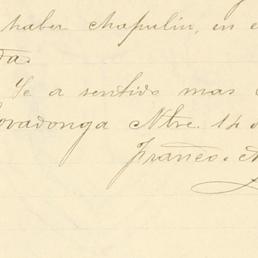 haber chapulin, en e
da.
Se a sentido mas
ovadonga Nbre. 14 d
Franco. A